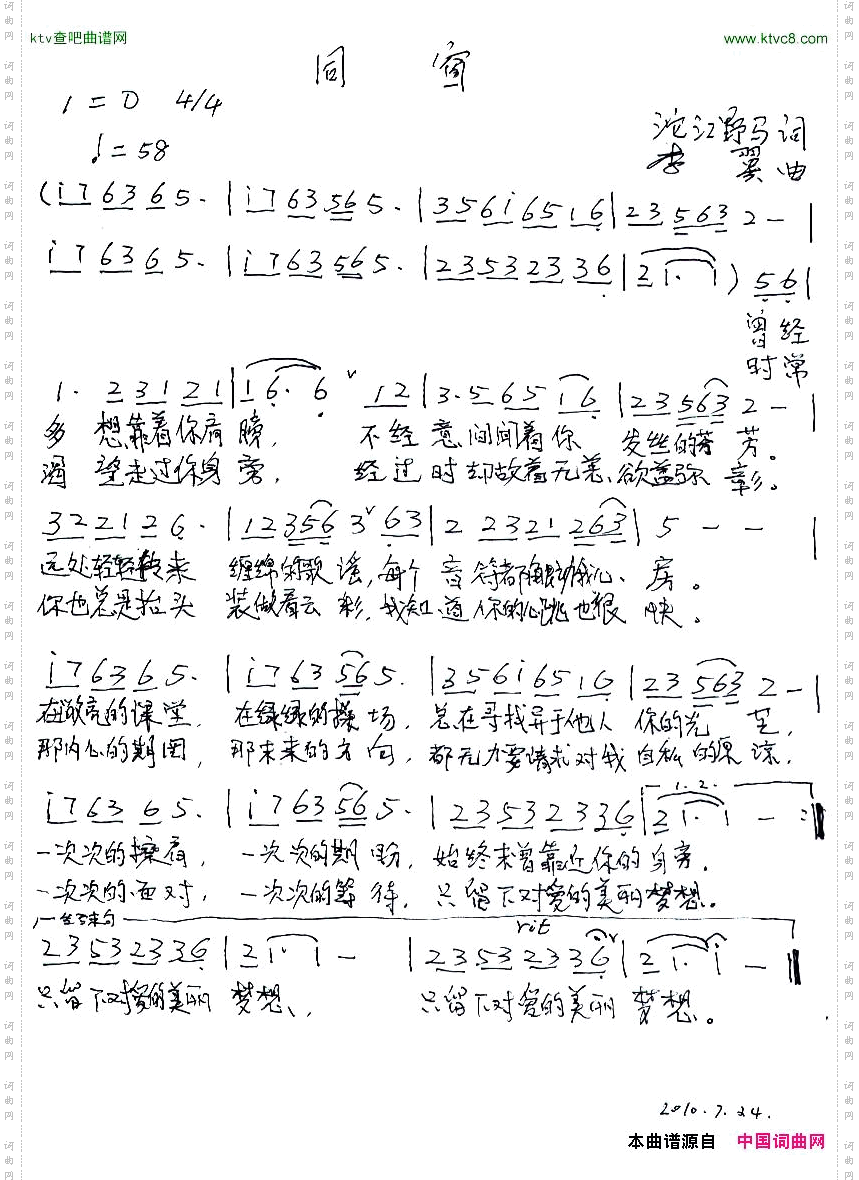 ktv查吧曲谱网 www.ktvc8.com
同窗
1=D 4/4
♩=58
沱江野马词
李翼曲
(i7 63 6 5· | i7 63 56 5· | 356i 6516 | 23 563 2 - |
i7 63 6 5· | i7 63 56 5· | 2353 2336 | 2 1· 1 ) 56 |
曾经
时常
1· 2 31 21 | 1 6· 6 12 | 3·5 65 1 6 | 23 563 2 - |
多想靠着你肩膀, 不经意间闻着你发丝的芳芳。
渴望走过你身旁, 经过时却故着无恙、欲盖弥彰。
32 21 2 6· | 12 356 3 63 | 2 2321 263 | 5 - - |
远处轻轻转来 缠绵的歌谣,每个音符都触动我心房。
你也总是抬头 装做看云彩,我知道你的心跳也很快。
i7 63 6 5· | i7 63 56 5· | 356i 651 6 | 23 563 2 - |
在敞亮的课堂, 在绿绿的操场, 总在寻找异于他人 你的光芒,
那内心的期图, 那未来的方向, 都无力要请求对我自私的原谅,
i7 63 6 5· | i7 63 56 5· | 2353 2336 | 1.2. 2 1· 1 - :‖
一次次的擦肩, 一次次的期盼, 始终未曾靠近你的身旁.
一次次的面对, 一次次的等待, 只留下对爱的美丽梦想。
结束句
rit
2353 2336 | 2 1· 1 - | 2353 2336 | 2 1· i - ‖
只留下对爱的美丽梦想、, 只留下对爱的美丽梦想。
2010.7.24.
本曲谱源自 中国词曲网